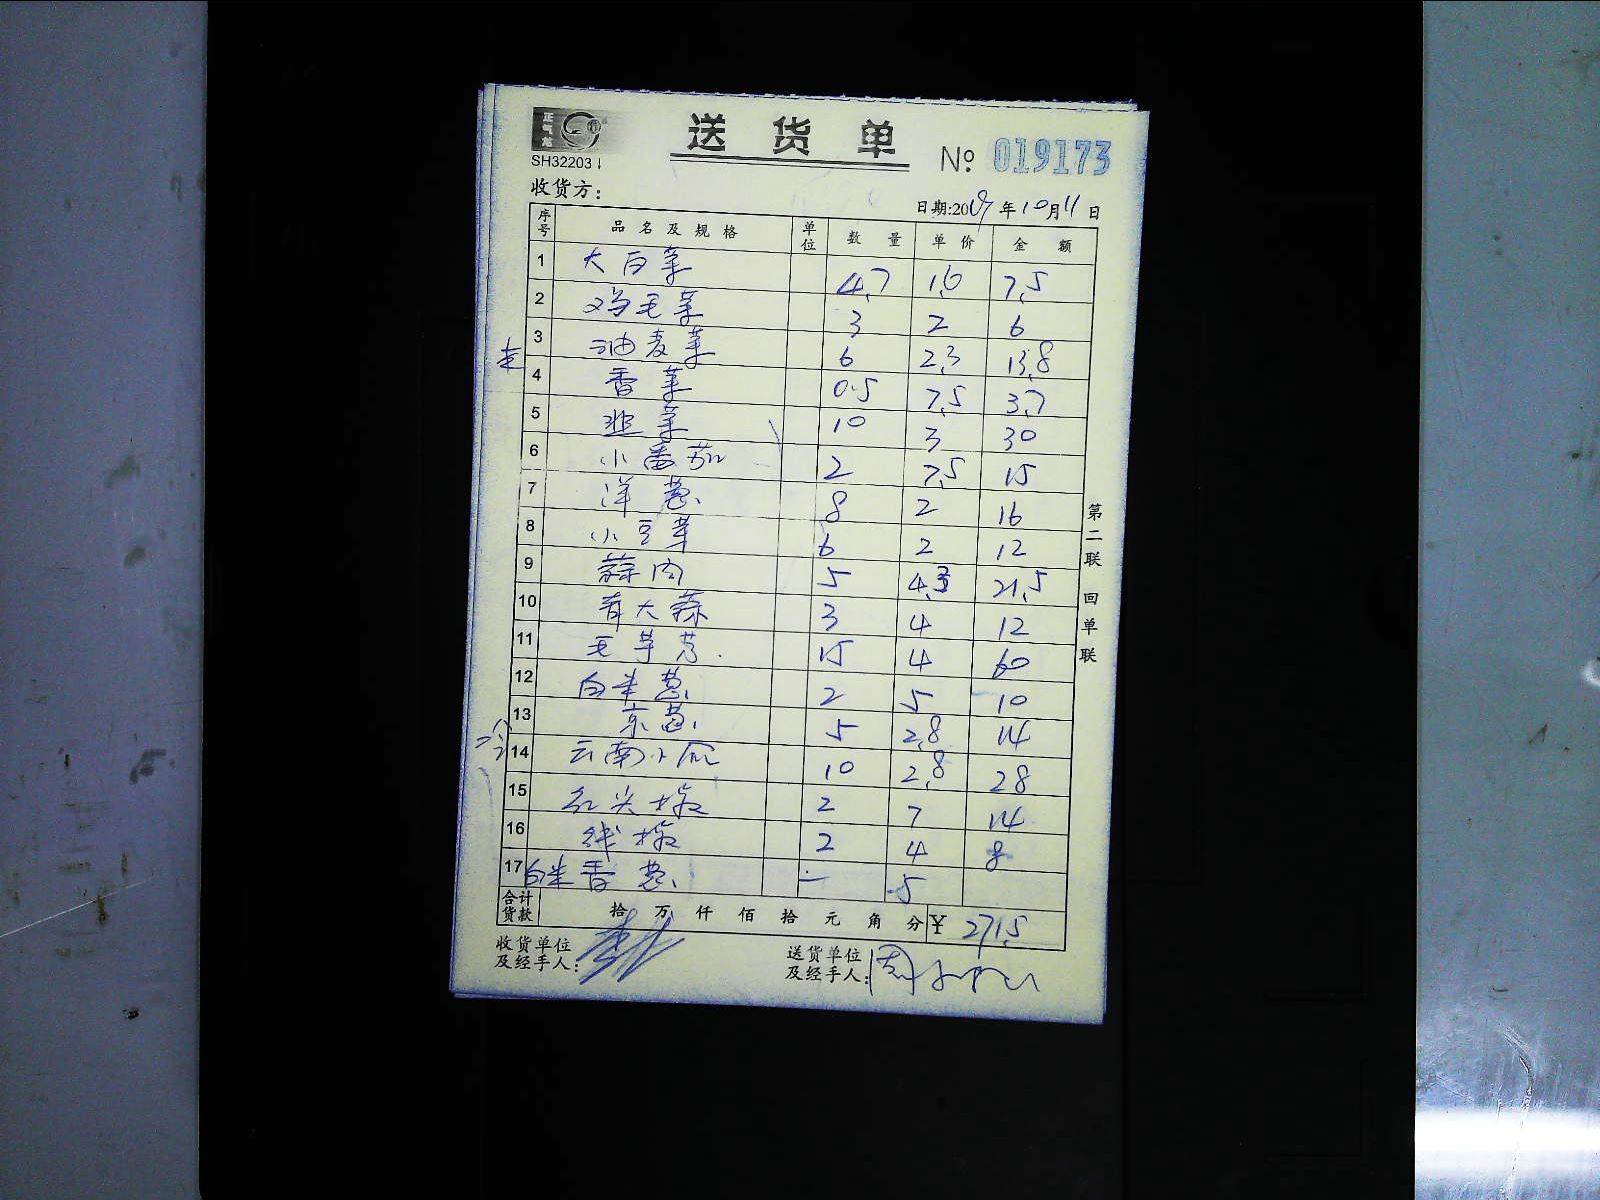 送货单
SH32203
№ 019173
收货方:
日期:2019年10月11日
序号 品名及规格 单位 数量 单价 金额
1 大白菜 4.7 1.6 7.5
2 鸡毛菜 3 2 6
3 油麦菜 6 2.3 13.8
4 香菜 0.5 7.5 3.7
5 韭菜 10 3 30
6 小番茄 2 7.5 15
7 洋葱 8 2 16
8 小豆芽 6 2 12
9 蒜肉 5 4.3 21.5
10 青大蒜 3 4 12
11 毛芋艿 15 4 60
12 白半葱 2 5 10
13 京葱 5 2.8 14
14 云南小瓜 10 2.8 28
15 红尖椒 2 7 14
16 线椒 2 4 8
17 白半香葱 5
合计货款 拾 万 仟 佰 拾 元 角 分 ¥ 271.5
收货单位及经手人:
送货单位及经手人:
第二联 回单联